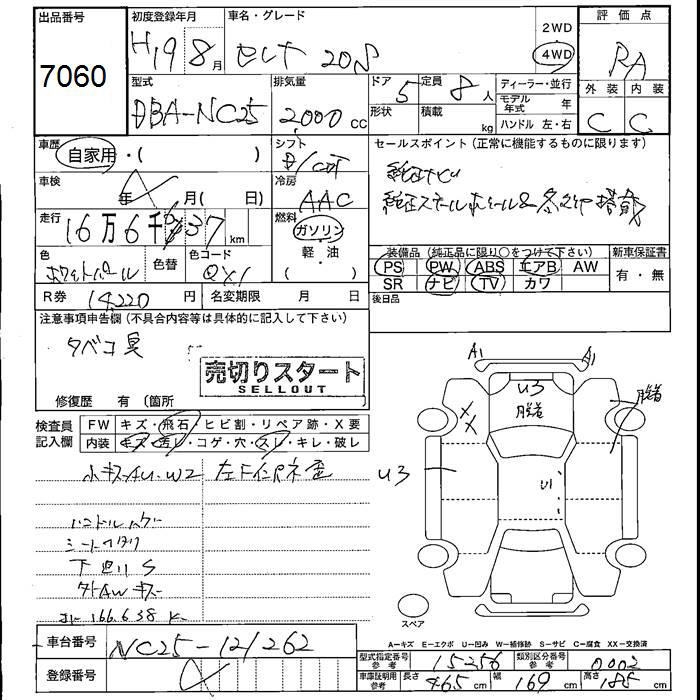 出品番号
7060
初度登録年月
H19 8月
車名・グレード
セレナ 20S
2WD
4WD
評価点
RA
外装 内装
C C
型式
DBA-NC25
排気量
2,000 cc
ドア 5
形状
定員 8人
積載 kg
ディーラー・並行
モデル年式 年
ハンドル 左・右
車歴
自家用・( )
車検
年 月( 日)
シフト
冷房
AAC
セールスポイント(正常に機能するものに限ります)
純正ナビ
純正スチールホイール&
走行
16万6千 37 km
燃料
ガソリン
軽・油
( )
色
ホワイトパール
色替
色コード
QX1
装備品(純正品に限り〇をつけて下さい)
PS PW ABS エアB AW
SR ナビ TV カワ
新車保証書
有・無
R券 14,220 円
名変期限 月 日
後日品
注意事項申告欄(不具合内容等は具体的に記入して下さい)
タバコ臭
売切りスタート
SELLOUT
修復歴 有 (箇所
検査員記入欄
FW キズ・飛石・ヒビ割・リペア跡・X要
内装 キズ・汚レ・コゲ・穴・スレ・キレ・破レ
小キズAU・W2
ハンドル
シート
下廻りS
外AWキズ
166,638 K
A1
A1
U3
脱着
脱着
XX
U3
U1
スペア
A=キズ E=エクボ U=凹み W=補修跡 S=サビ C=腐食 XX=交換済
車台番号
NC25-121262
登録番号
型式指定番号 参考 15256
類別区分番号 参考 0002
車庫証明用 参考 長さ 465 cm 幅 169 cm 高さ 185 cm